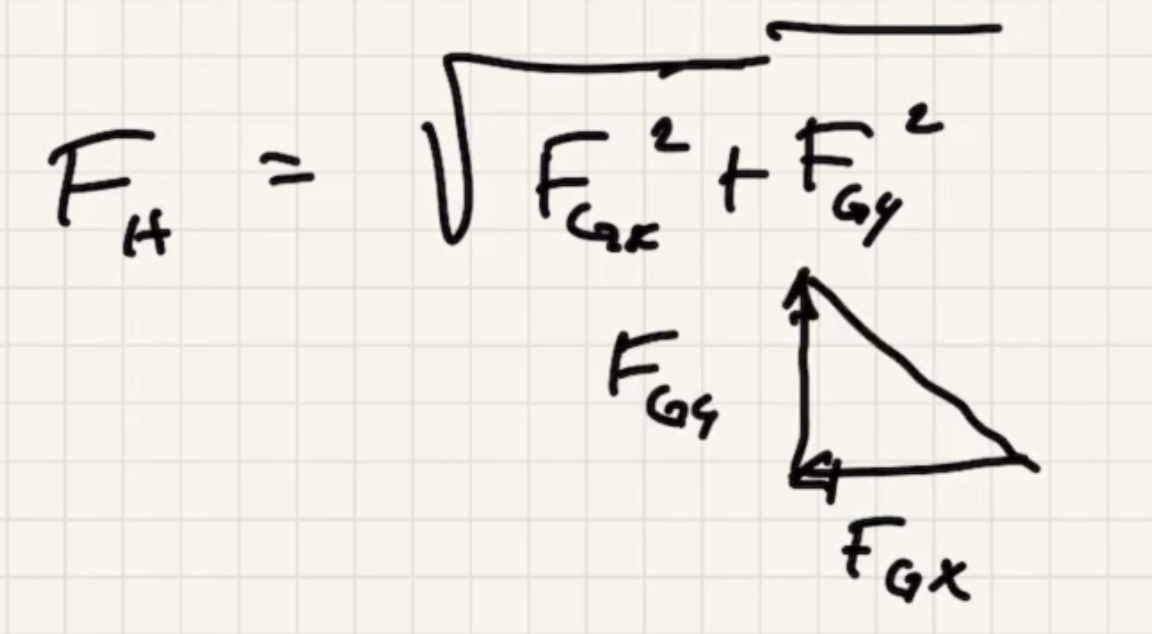 F_H = √(F_Gx² + F_Gy²)
F_Gy
F_Gx